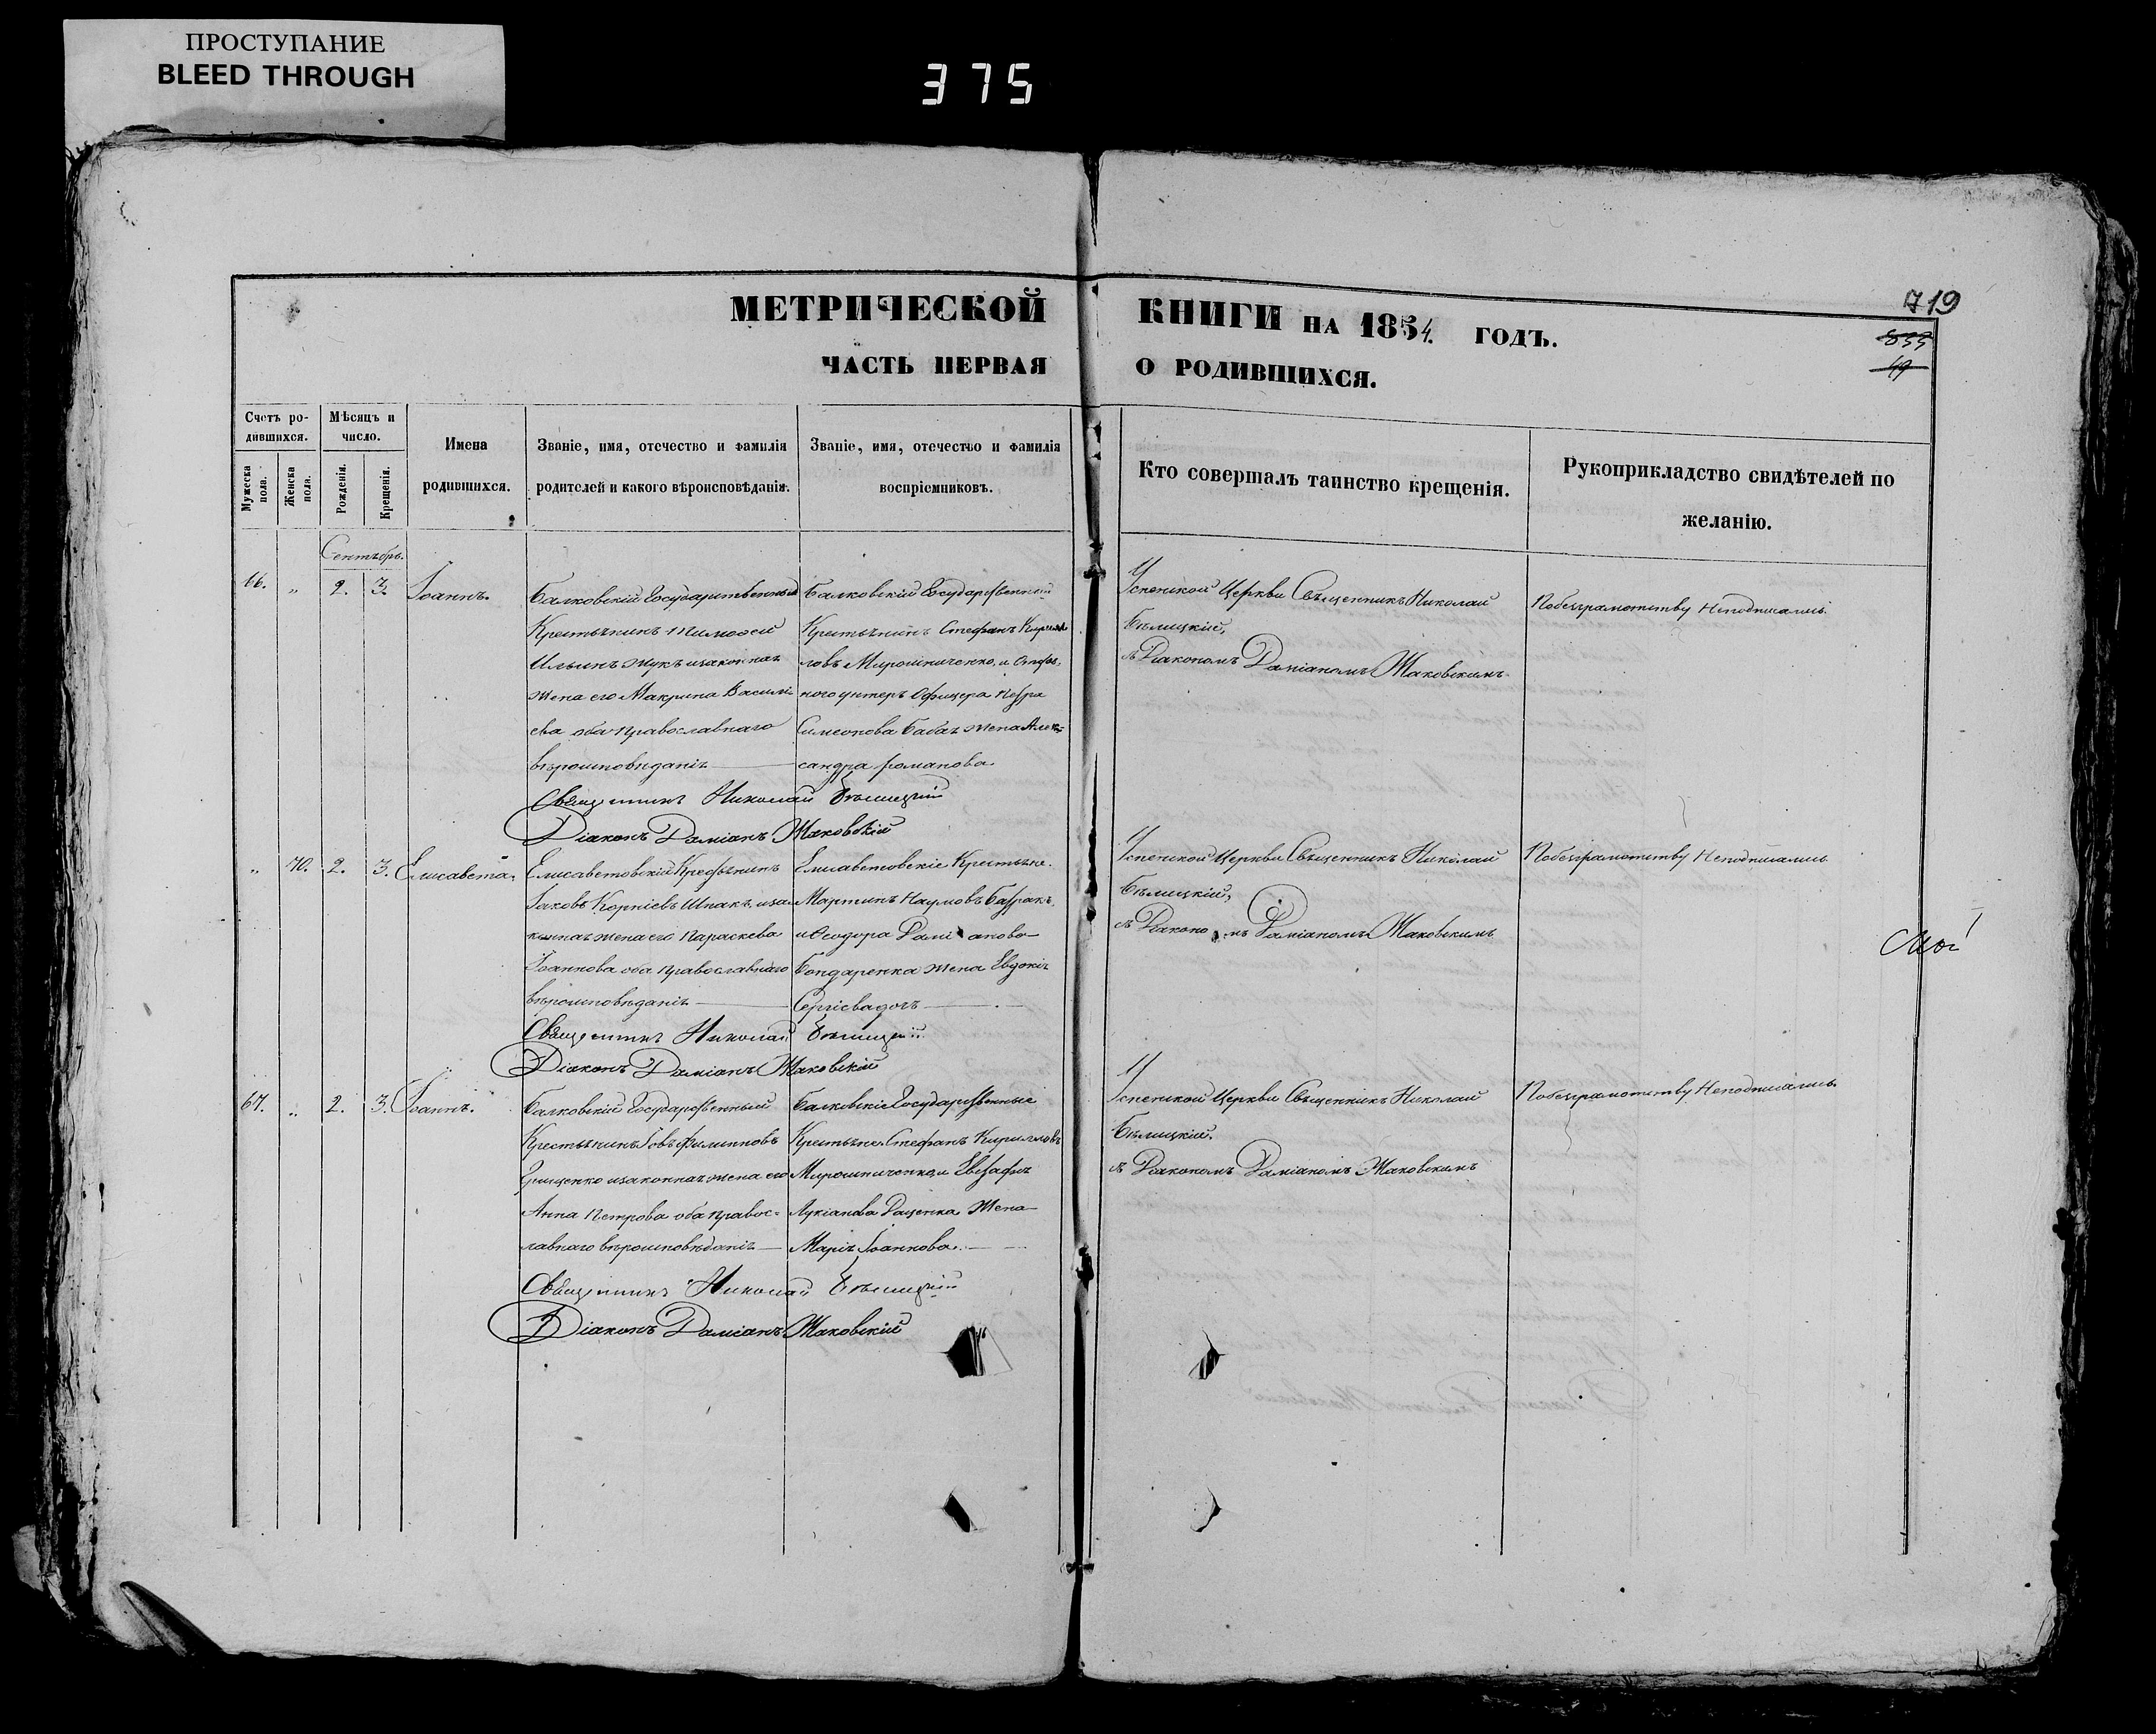 ПРОСТУПАНИЕ
BLEED THROUGH
375
МЕТРИЧЕСКОЙ КНИГИ НА 1854. ГОДЪ.
ЧАСТЬ ПЕРВАЯ О РОДИВШИХСЯ.
719
Счетъ родившихся.
Мужеска пола.
Женска пола.
Мѣсяцъ и число.
Рожденія.
Крещенія.
Имена родившихся.
Званіе, имя, отечество и фамилія родителей и какого вѣроисповѣданія.
Званіе, имя, отечество и фамилія воспріемниковъ.
Кто совершалъ таинство крещенія.
Рукоприкладство свидѣтелей по желанію.
Сентябрь.
66. „ 2. 3. Іоаннъ.
Балковскій Государственный
Крестьянинъ Тимоѳей
Ильинъ Жукъ изаконная
жена его Макрина Василі-
ева оба православнаго
вѣроисповѣданія
Балковскій Государственный
Крестьянинъ Стефанъ Кирил
ловъ Мирошниченко, и Отстав-
ного унтеръ Офицера Петра
Симеонова Бабая жена Алек-
сандра Романова
Успенской Церкви Священникъ Николай
Бѣлицкій,
съ Діакономъ Даміаномъ Маковскимъ
Побезграмотству Неподписались.
Священникъ Николай Бѣлицкій
Діаконъ Даміанъ Маковскій
„ 70. 2. 3. Елисавета.
Елисаветовскій Крестьянинъ
Іаковъ Корніевъ Шпакъ, изак
конная жена его Параскева
Іоаннова оба православнаго
вѣроисповѣданія
Елисаветовскіе Крестьяне.
Мартинъ Наумовъ Батракъ,
иѲеодора Даміанова
Бондаренка жена Евдокія
Сергіева дочь
Успенской Церкви Священникъ Николай
Бѣлицкій,
съ Діакономъ Даміаномъ Маковскимъ
Побезграмотству Неподписались
Священникъ Николай Бѣлицкій
Діаконъ Даміанъ Маковскій
67. „ 2. 3. Іоаннъ.
Балковскій Государственный
Крестьянинъ Іовъ Филипповъ
Грищенко изаконная жена его
Анна Петрова оба правос-
лавнаго вѣроисповѣданія
Балковскіе Государственные
Крестьяне, Стефанъ Кирилловъ
Мирошниченко, и Евстафія
Лукіанова Даценка Жена
Марія Іоаннова.
Успенской Церкви Священникъ Николай
Бѣлицкій.
съ Діакономъ Даміаномъ Маковскимъ
Побезграмотству Неподписались.
Священникъ Николай Бѣлицкій
Діаконъ Даміанъ Маковскій